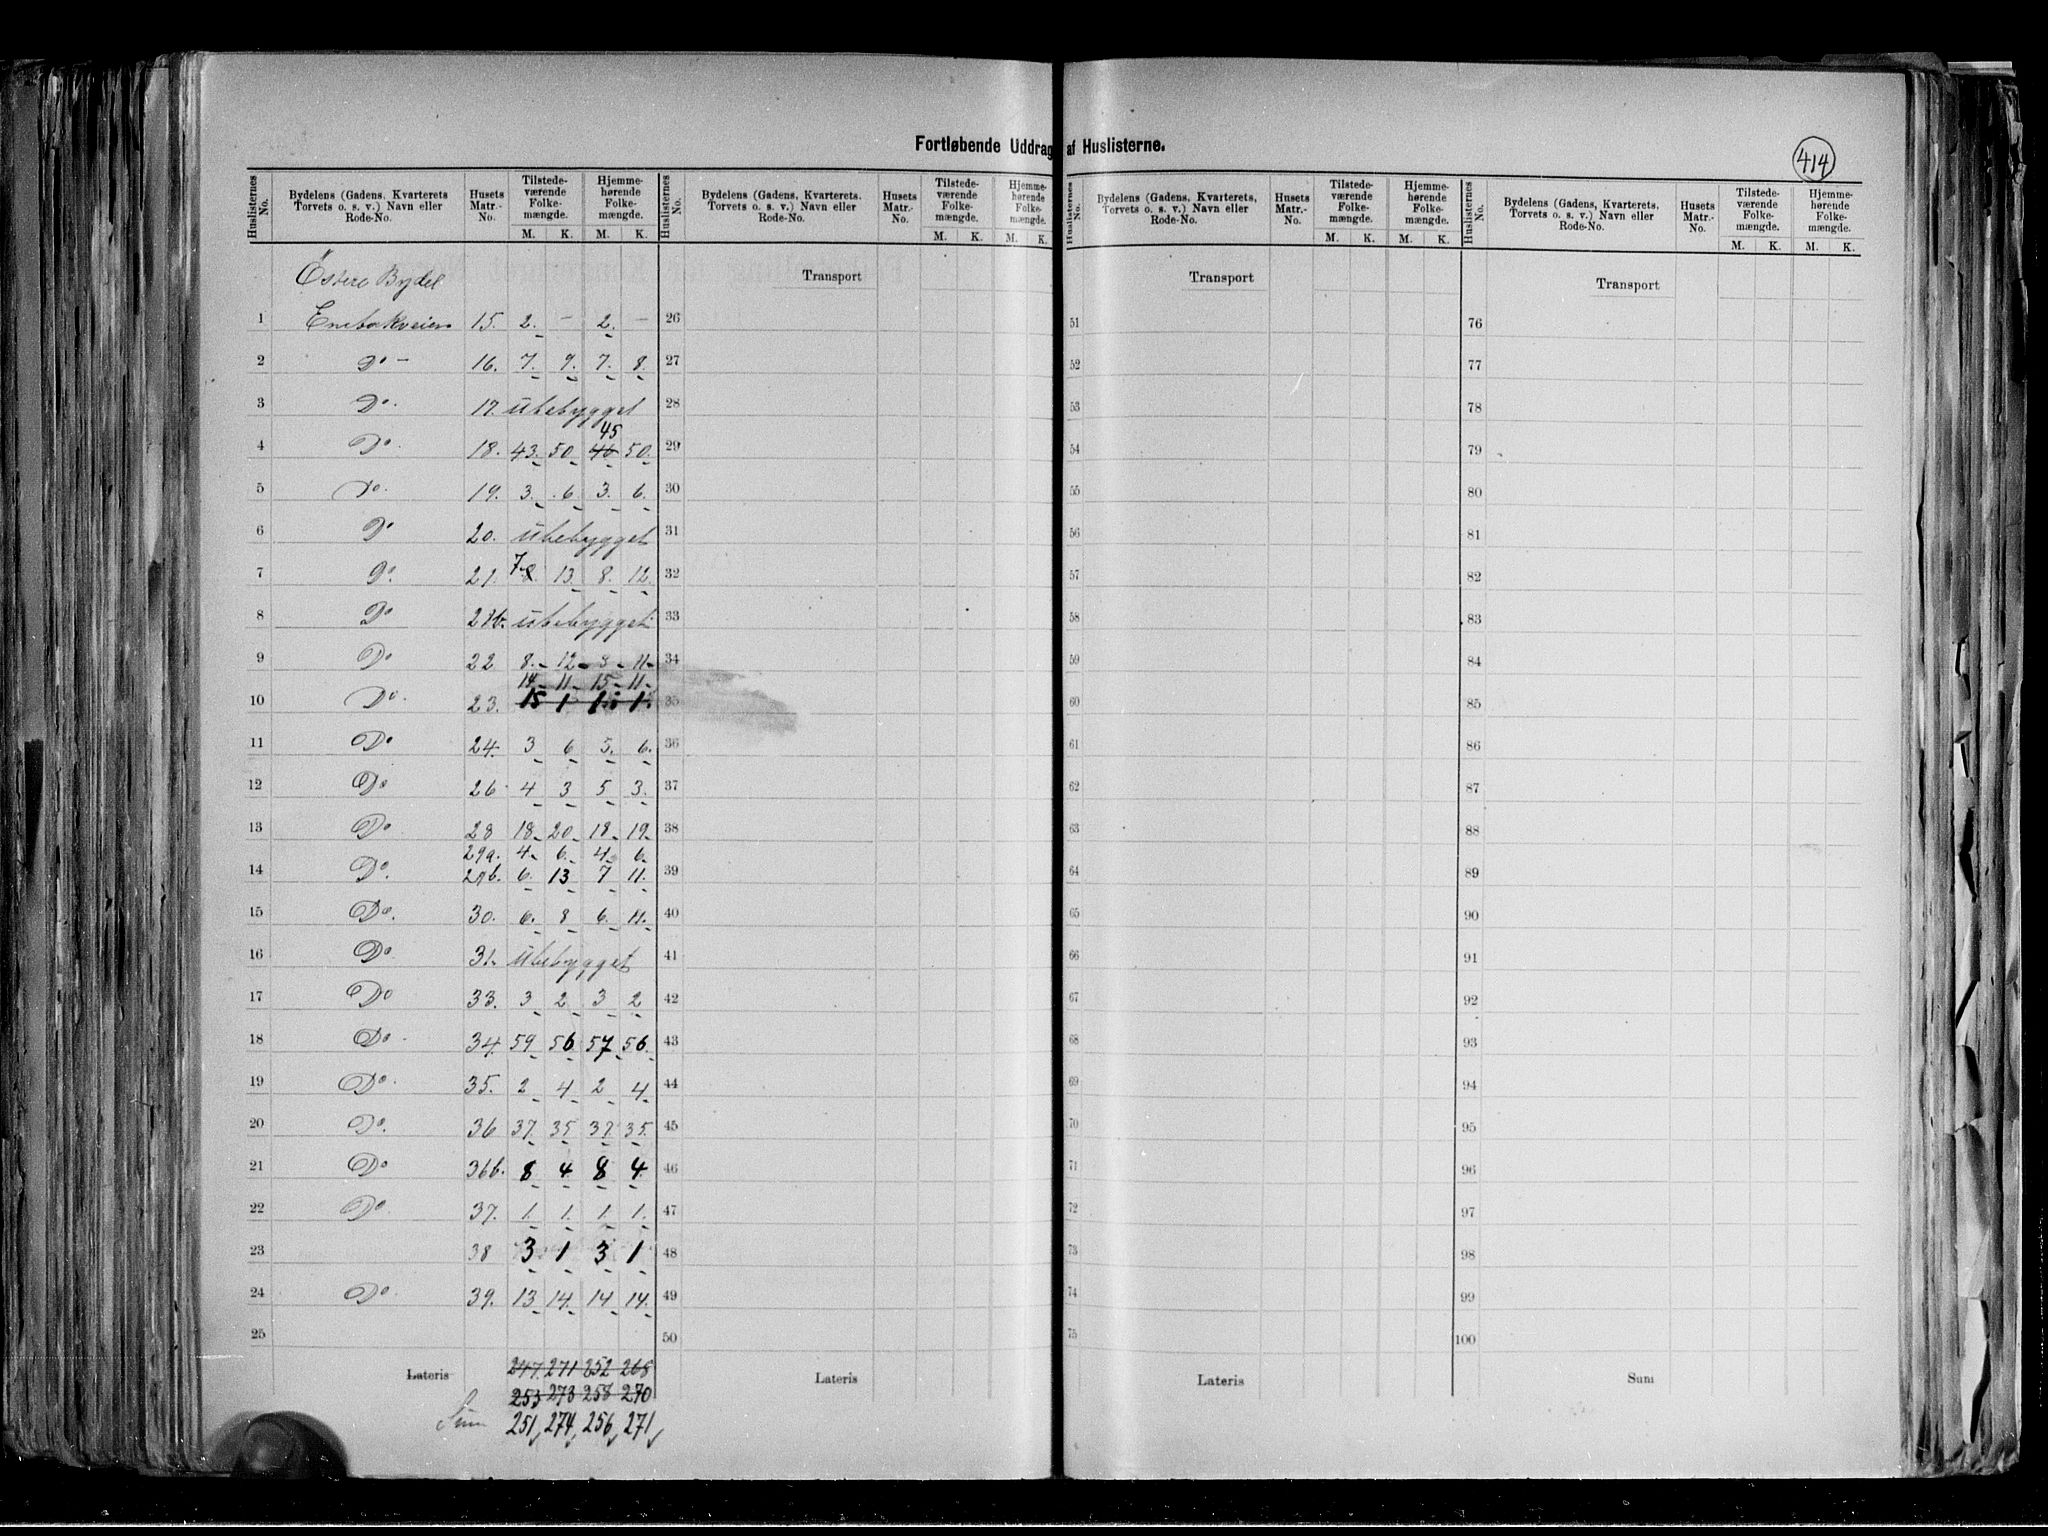 Fortløbende Uddrag af Huslisterne.
414
Huslisternes No. | Bydelens (Gadens, Kvarterets, Torvets o. s. v.) Navn eller Rode-No. | Husets Matr.-No. | Tilstedeværende Folkemængde. M. K. | Hjemmehørende Folkemængde. M. K.
Huslisternes No. | Bydelens (Gadens, Kvarterets, Torvets o. s. v.) Navn eller Rode-No. | Husets Matr.-No. | Tilstedeværende Folkemængde. M. K. | Hjemmehørende Folkemængde. M. K.
Huslisternes No. | Bydelens (Gadens, Kvarterets, Torvets o. s. v.) Navn eller Rode-No. | Husets Matr.-No. | Tilstedeværende Folkemængde. M. K. | Hjemmehørende Folkemængde. M. K.
Huslisternes No. | Bydelens (Gadens, Kvarterets, Torvets o. s. v.) Navn eller Rode-No. | Husets Matr.-No. | Tilstedeværende Folkemængde. M. K. | Hjemmehørende Folkemængde. M. K.
Östere Bydel Transport Transport Transport
1 Enebakveien 15. 2. – 2. – 26 51 76
2 Do – 16. 7. 9. 7. 8. 27 52 77
3 Do. 17. ubebygget 28 53 78
45
4 Do. 18. 43. 50. 46 50. 29 54 79
5 Do. 19. 3. 6. 3. 6. 30 55 80
6 Do 20. Ubebygget 31 56 81
7 Do. 21. 7. 8 13. 8. 12. 32 57 82
8 Do 21b. ubebygget 33 58 83
9 Do 22 8. 12 8 11 34 59 84
14 11 15 11
10 Do. 23. 15 1 1 35 60 85
11 Do 24. 3 6 3. 6. 36 61 86
12 Do 26. 4 3 5 3. 37 62 87
13 Do 28 18 20 18 19 38 63 88
29a. 4 6. 4 6.
14 Do. 29b. 6. 13 7 11. 39 64 89
15 Do. 30. 6. 8 6. 11. 40 65 90
16 Do. 31. Ubebygget 41 66 91
17 Do 33. 3 2 3 2 42 67 92
18 Do. 34. 59 56 57 56. 43 68 93
19 Do. 35. 2 4 2 4 44 69 94
20 Do. 36 37. 35. 37. 35. 45 70 95
21 Do 36b. 8 4 8 4 46 71 96
22 Do. 37. 1. 1. 1. 1. 47 72 97
23 38 3 1 3 1 48 73 98
24 Do. 39. 13 14. 14 14. 49 74 99
25 50 75 100
Lateris 247. 271 252 268 Lateris Lateris Sum
253 273 258 270
Sum 251 274 256 271